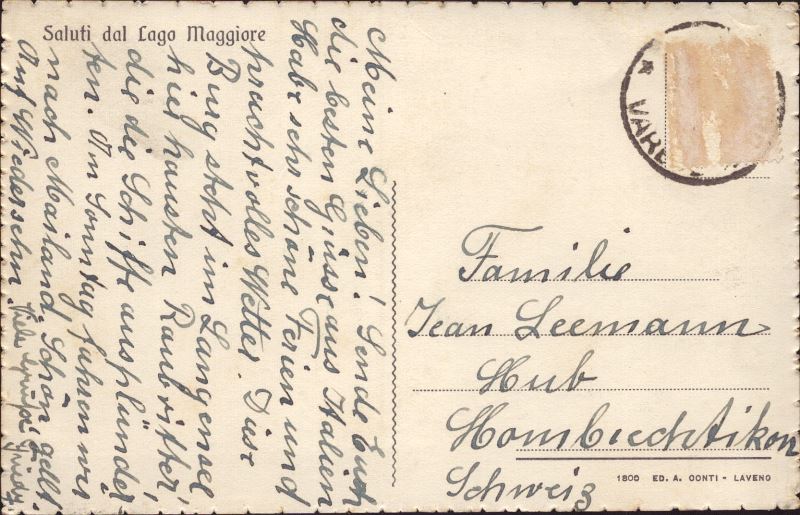 Saluti dal Lago Maggiore
Meine Lieben! Sende Euch
die besten Grüsse aus Italien
Habe sehr schöne Ferien und
prachtvolles Wetter. Diese
Burg steht im Langensee
hier hausten Raubritter,
die die Schiffe ausplünder-
ten. Am Sonntag fahren wir
nach Mailand. Schön gellt.
Auf Wiedersehn.
Viele Grüsse
VARE
Familie
Jean Leemann
Hub
Hombrechtikon
Schweiz
1800 ED. A. CONTI - LAVENO